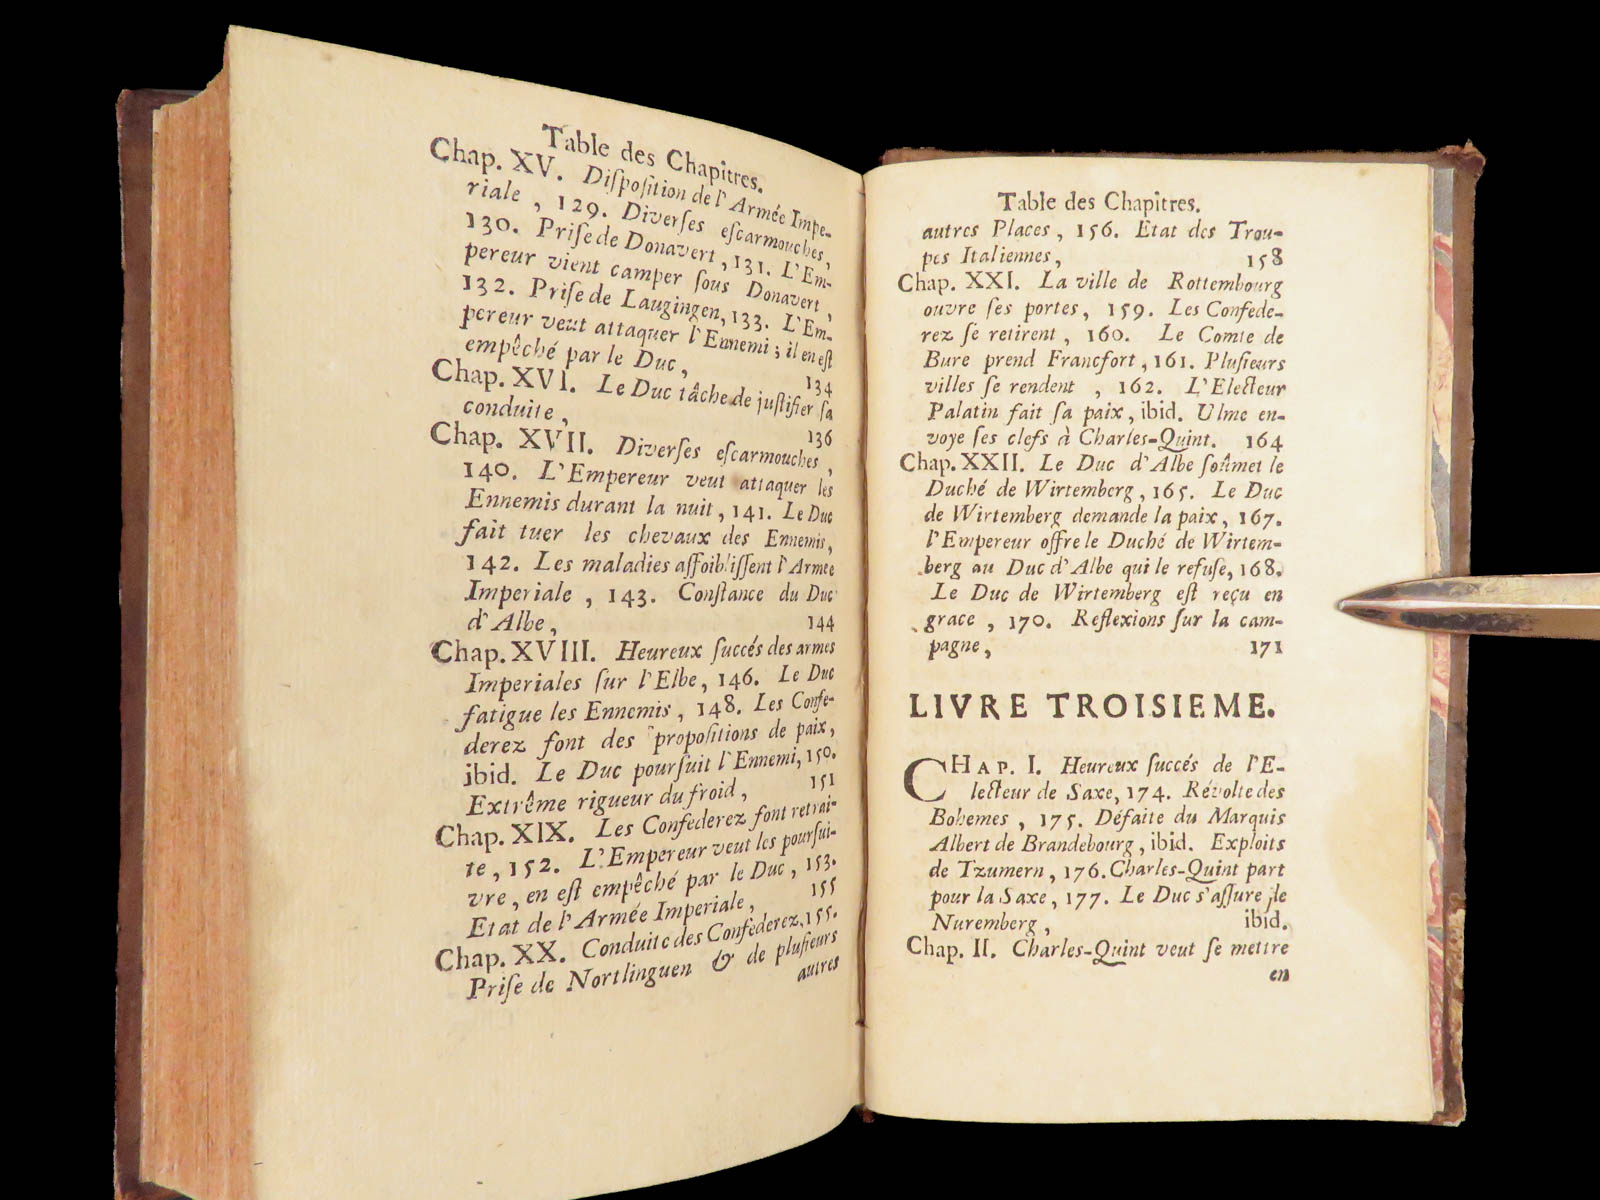 Table des Chapitres.
Chap. XV. Diſpoſition de l'Armée Impe-
riale, 129. Diverſes eſcarmouches,
130. Priſe de Donavert, 131. L'Em-
pereur vient camper ſous Donavert,
132. Priſe de Laugingen, 133. L'Em-
pereur veut attaquer l'Ennemi; il en eſt
empêché par le Duc, 134
Chap. XVI. Le Duc tâche de juſtifier ſa
conduite, 136
Chap. XVII. Diverſes eſcarmouches,
140. L'Empereur veut attaquer les
Ennemis durant la nuit, 141. Le Duc
fait tuer les chevaux des Ennemis,
142. Les maladies affoibliſſent l'Armée
Imperiale, 143. Conſtance du Duc
d'Albe, 144
Chap. XVIII. Heureux ſuccés des armes
Imperiales ſur l'Elbe, 146. Le Duc
fatigue les Ennemis, 148. Les Confe-
derez font des propoſitions de paix,
ibid. Le Duc pourſuit l'Ennemi, 150.
Extrême rigueur du froid, 151
Chap. XIX. Les Confederez font retrai-
te, 152. L'Empereur veut les pourſui-
vre, en eſt empêché par le Duc, 153.
Etat de l'Armée Imperiale, 155
Chap. XX. Conduite des Confederez, 155.
Priſe de Nortlinguen & de pluſieurs
autres
Table des Chapitres.
autres Places, 156. Etat des Trou-
pes Italiennes, 158
Chap. XXI. La ville de Rottembourg
ouvre ſes portes, 159. Les Confede-
rez ſe retirent, 160. Le Comte de
Bure prend Francfort, 161. Pluſieurs
villes ſe rendent, 162. L'Electeur
Palatin fait ſa paix, ibid. Ulme en-
voye ſes clefs à Charles-Quint. 164
Chap. XXII. Le Duc d'Albe ſoûmet le
Duché de Wirtemberg, 165. Le Duc
de Wirtemberg demande la paix, 167.
l'Empereur offre le Duché de Wirtem-
berg au Duc d'Albe qui le refuſe, 168.
Le Duc de Wirtemberg eſt reçu en
grace, 170. Reflexions ſur la cam-
pagne, 171
LIVRE TROISIEME.
CHAP. I. Heureux ſuccés de l'E-
lecteur de Saxe, 174. Révolte des
Bohemes, 175. Défaite du Marquis
Albert de Brandebourg, ibid. Exploits
de Tzumern, 176. Charles-Quint part
pour la Saxe, 177. Le Duc s'aſſure de
Nuremberg, ibid.
Chap. II. Charles-Quint veut ſe mettre
en